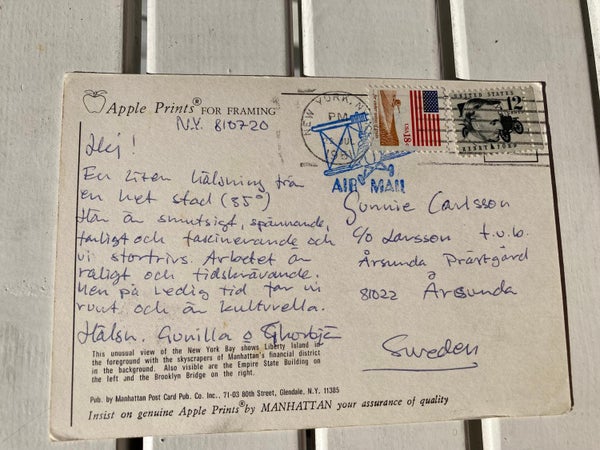 Apple Prints® FOR FRAMING
N.Y. 810720
Hej!
En liten hälsning från
en het stad (85°)
Här är smutsigt, spännande,
farligt och fascinerande och
vi stortrivs. Arbetet är
roligt och tidskrävande.
Men på ledig tid far vi
runt och är kulturella.
Hälsn. Gunilla o
This unusual view of the New York Bay shows Liberty Island in
the foreground with the skyscrapers of Manhattan's financial district
in the background. Also visible are the Empire State Building on
the left and the Brooklyn Bridge on the right.
Pub. by Manhattan Post Card Pub. Co. Inc., 71-03 80th Street, Glendale, N.Y. 11385
Insist on genuine Apple Prints® by MANHATTAN your assurance of quality
NEW YORK, N.Y.
PM
USA 18c
UNITED STATES
12
AIR MAIL
Gunnie Carlsson
c/o Larsson f.v.b.
Årsunda Prästgård
81022 Årsunda
Sweden